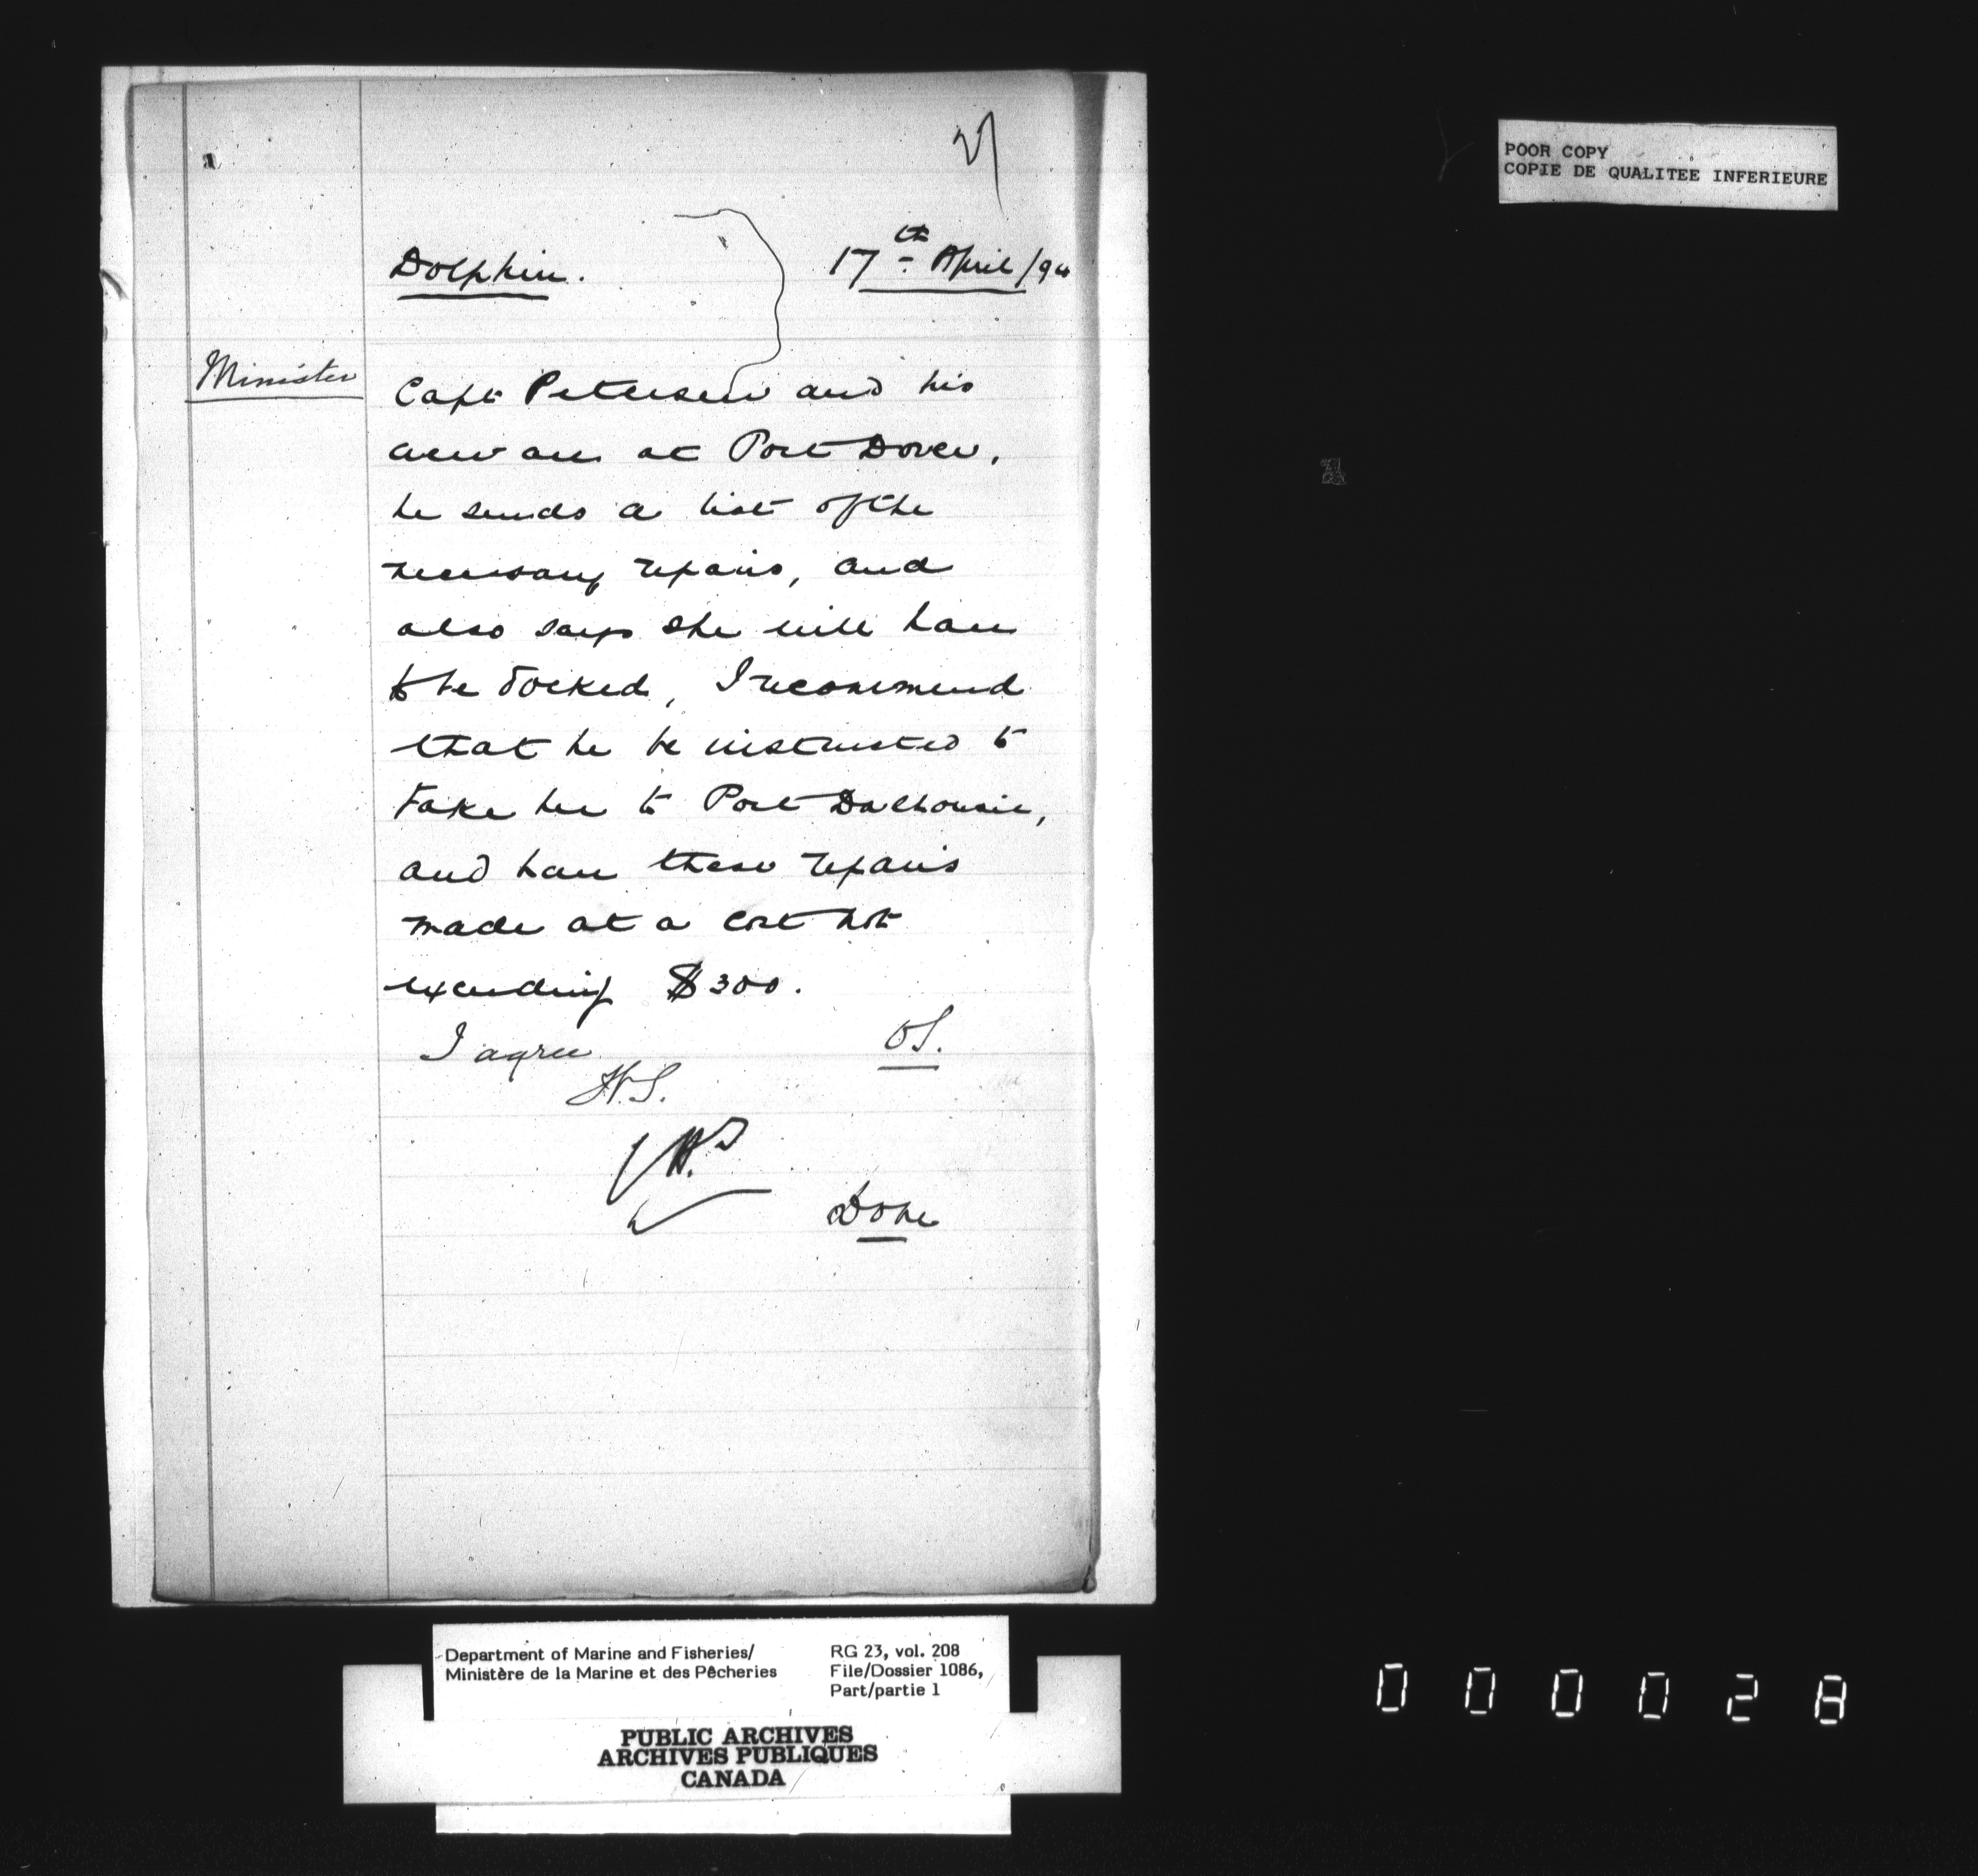 POOR COPY
COPIE DE QUALITEE INFERIEURE
Dolphin. 17th April /94
Minister
Capt Petersen and his
crew are at Port Dover,
he sends a list of the
necessary repairs, and
also says she will have
to be docked, I recommend
that he be instructed to
take her to Port Dalhousie,
and have these repairs
made at a cost not
exceeding $300.
OS.
I agree
H.S.
Done
Department of Marine and Fisheries/
Ministère de la Marine et des Pêcheries
RG 23, vol. 208
File/Dossier 1086,
Part/partie 1
PUBLIC ARCHIVES
ARCHIVES PUBLIQUES
CANADA
000028